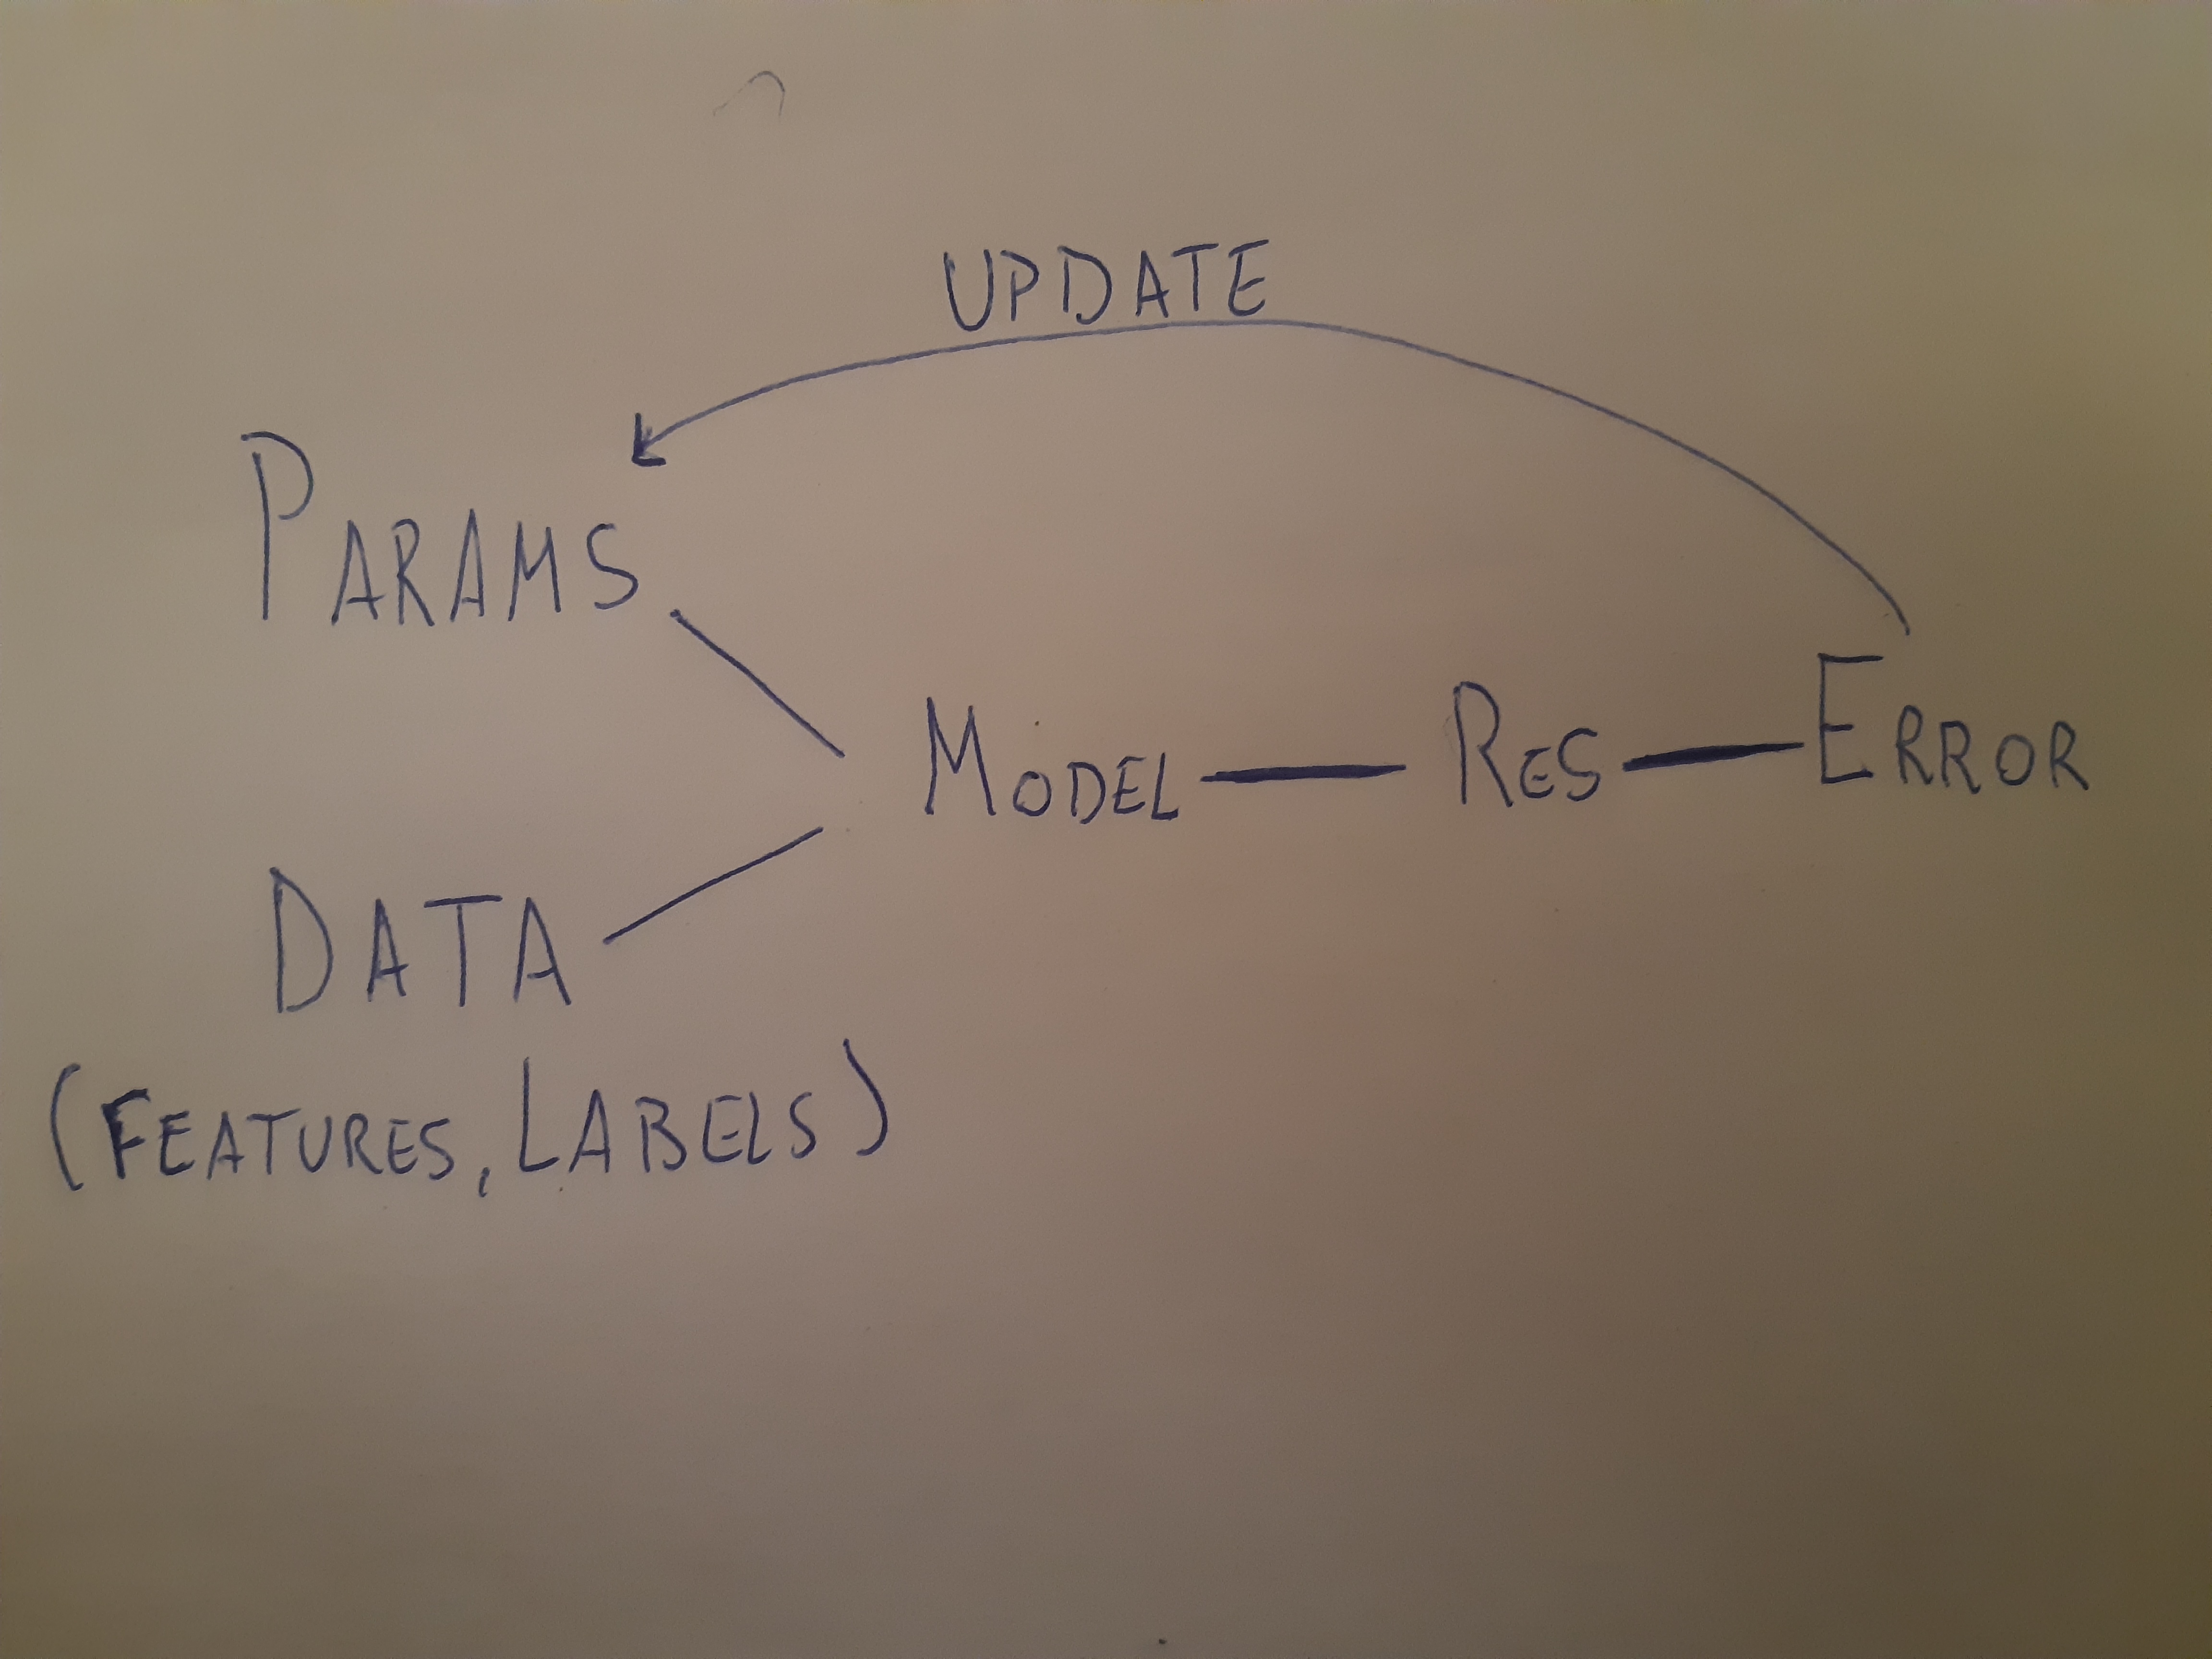 UPDATE
PARAMS
MODEL RES ERROR
DATA
(FEATURES, LABELS)